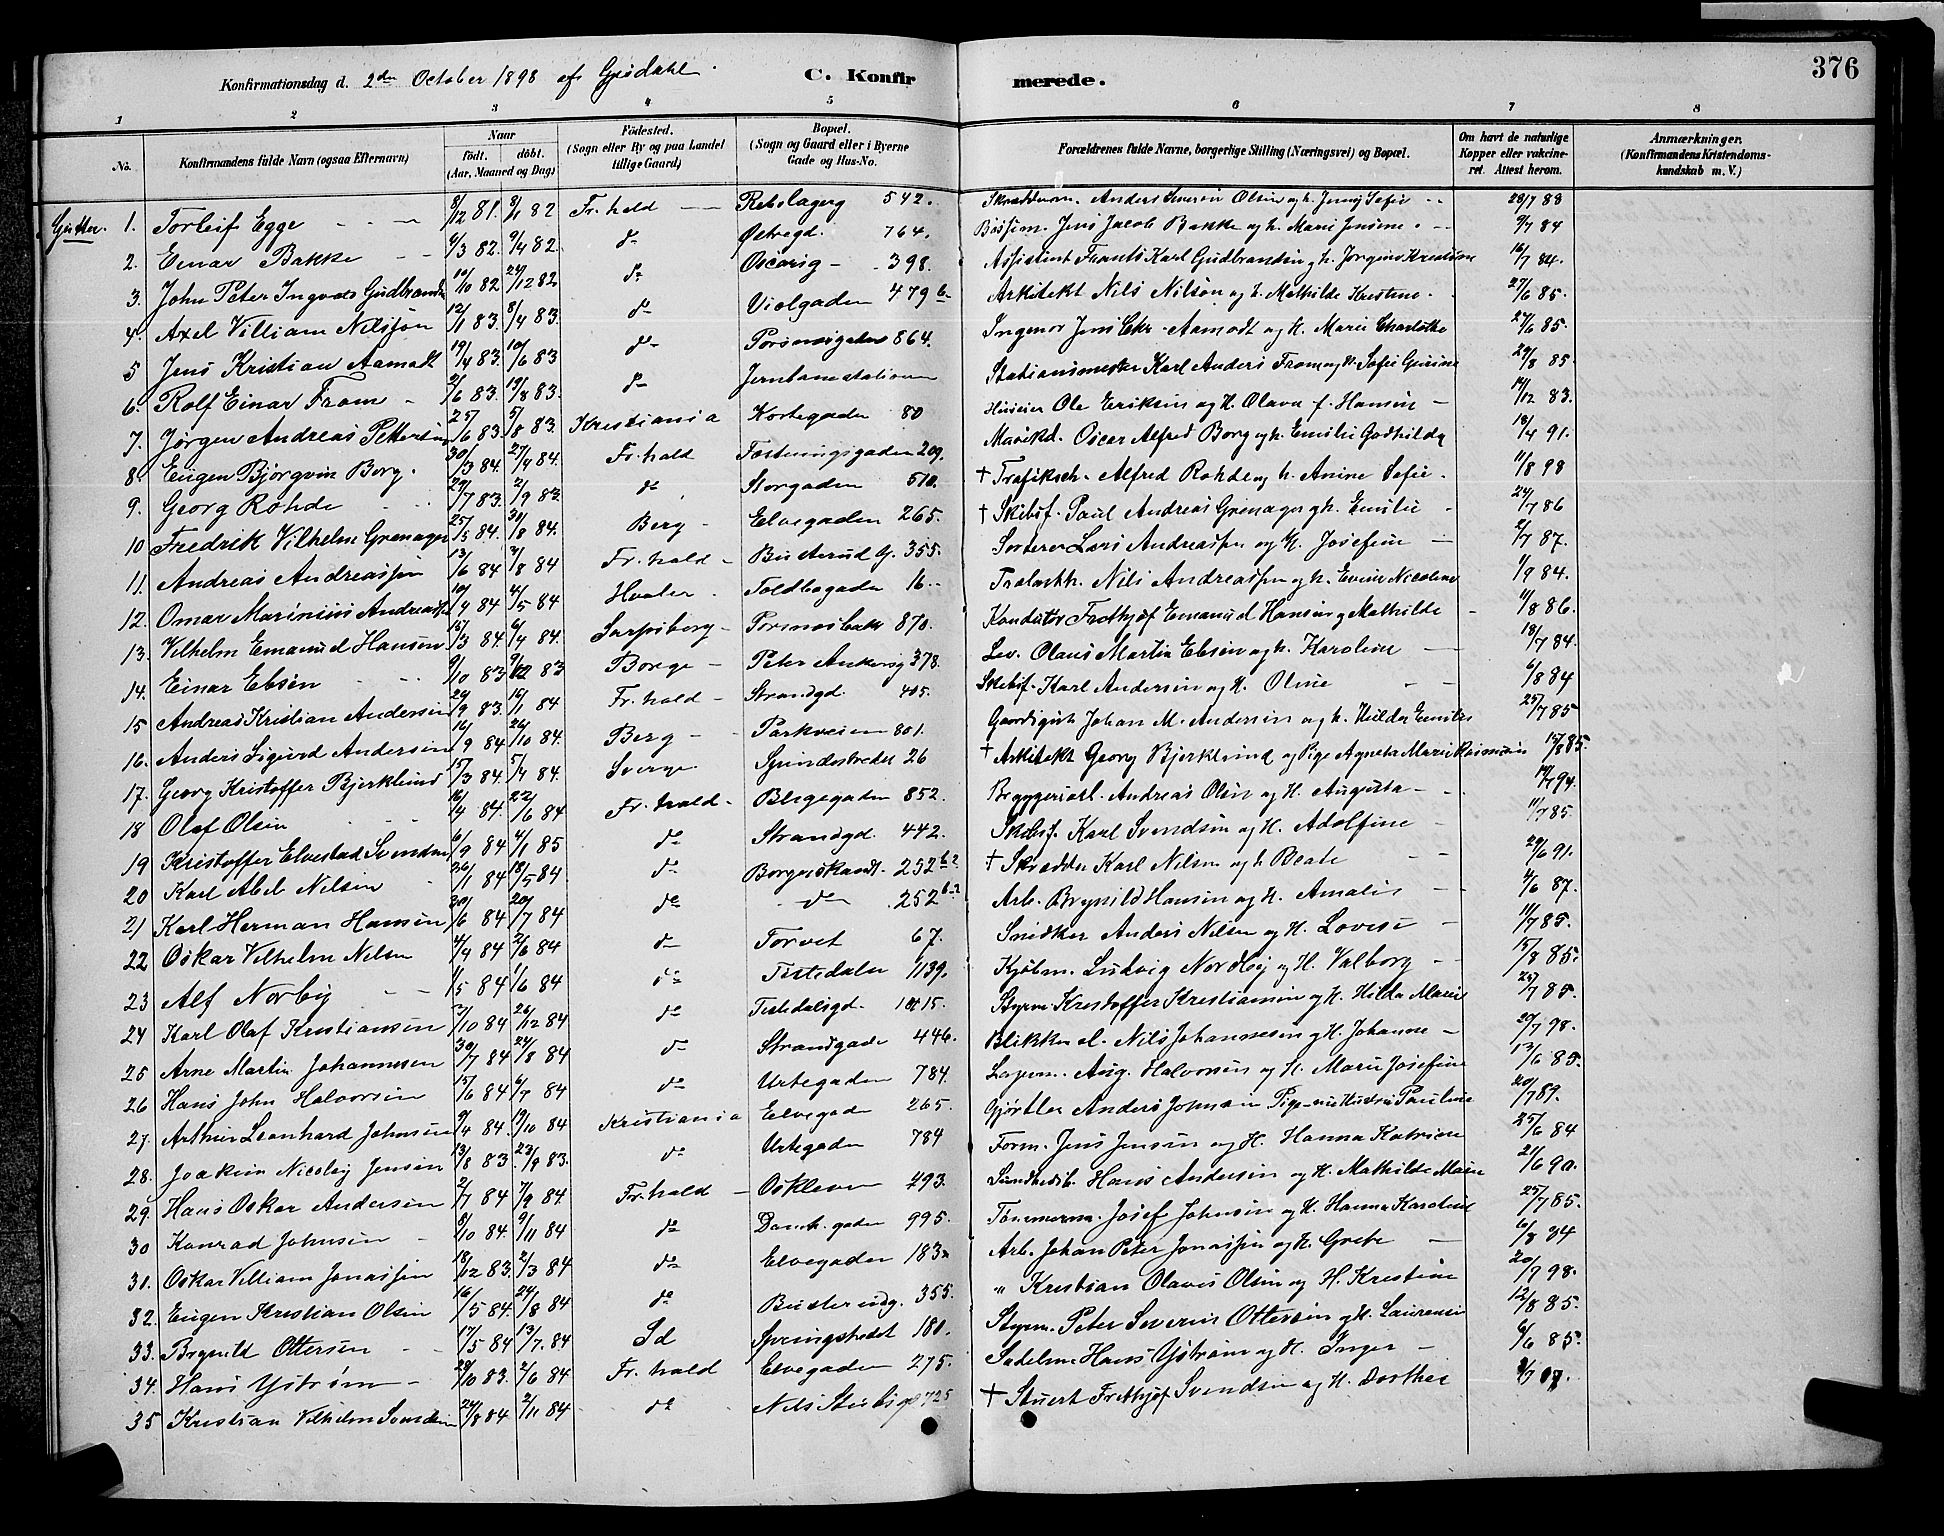 376
Konfirmationsdag d. 2den October 1898 af Gjødahl. C. Konfirmerede.
1 2 3 4 5 6 7 8
No. Konfirmandens fulde Navn (ogsaa Efternavn) Naar født. døbt. (Aar, Maaned og Dag) Fødested. (Sogn eller By og paa Landet tillige Gaard) Bopæl. (Sogn og Gaard eller i Byerne Gade og Hus-No. Forældrenes fulde Navne, borgerlige Stilling (Næringsvei) og Bopæl. Om havt de naturlige Kopper eller vakcineret. Attest herom. Anmærkninger. (Konfirmandens Kristendomskundskab m. V.)
Gutter. 1. Torleif Egge 8/12 81. 8/1 82 Fr.hald Rebslagerg 542. Skrædderm. Anders Olsen og h. Jenny Sofie 28/7 83
2. Einar Bakke 9/3 82. 9/4 82 do Østregd. 764. Bøssem. Jens Jacob Bakke og h. Marie Jensine 9/7 84
3. John Peter Ingvald Gudbrandsen 10/10 82 24/12 82 do Oscarsg 398. Assistent Frants Karl Gudbrandsen og h. Jørgine Kristine 16/7 84.
4. Axel Villiam Nilssøn 12/1 83. 8/4 83. do Violgaden 479 b Arkitekt Nils Nilsøn og h. Mathilde Kristine 27/6 85.
5 Jens Kristian Aamodt 19/4 83. 10/6 83 do Porsnæsgaden 864. Ingeniør Jens Chr. Aamodt og H. Marie Charlotte 27/6 85.
6. Rolf Einar From 2/6 83. 19/8 83. do Jernbanestationen Stationsmester Karl Anders From og H. Sofie Gurine 29/8 85.
7. Jørgen Andreas Pettersen 25/6 83. 5/8 83. Kristiania Kortegaden 80 Huseier Ole Eriksen og H. Olava f. Hansen 14/12 83.
8. Eugen Bjørgvin Berg. 30/3 84. 27/4 84. Fr.hald Fæstningsgaden 209. Oscar Alfred Borg og h. Emilie Godhilda 18/4 91.
9. Georg Rohde 29/7 83. 2/9 83. do Storgaden 510. † Alfred Rohde og h. Anine Sofie. 11/8 98
10 Fredrik Vilhelm Grenager 25/5 84. 31/8 84. Berg Elvegaden 265. † Skibsf. Paul Andreas Grenager og h. Emilie 24/7 86
11. Andreas Andreassen 13/6 84 3/8 84 Fr.hald Busterud G. 355. Sorterer Lars Andreassen og H. Josefine 2/7 87.
12. Omar Marinius Andreassen 10/4 84 4/5 84 Hvaler Toldbogaden 16. Trælasth. Nils Andreassen og h. Evine Nicoline 1/9 84.
13. Vilhelm Emanuel Hansen 15/3 84. 6/4 84. Sarpsborg Porsnæsbakk 870. Konduktør Frithjof Emanuel Hansen og Mathilde 11/8 86.
14. Einar Ebsen 9/10 83 9/12 83 Borge Peter Ankersg 378. Lev. Olaus Martin Ebsen og h. Karoline 18/7 84.
15 Andreas Kristian Andersen 29/9 83. 16/1 84 Fr.hald Strandgd. 405. Skibsf. Karl Andersen og H. Oline 6/8 84
16. Anders Sigurd Andersen 16/9 84 26/10 84. Berg Parkveien 801. Gaardigut Johan M. Andersen og h. Hilda Emilie 25/7 85
17. Georg Kristoffer Bjerklund 15/3 84. 5/4 84. Sverge Spindestredet 26 † Arkitekt Georg Bjerklund og Pige Agneta Marie 15/8 85.
18 Olaf Olsen 16/4 84. 22/6 84 Fr.hald Blegegaden 852. Bryggeriarb. Andreas Olsen og H. Augusta 19/7 94.
19 Kristoffer Elvestad Svendsen 6/9 84 4/1 85 do Strandgd. 442. Skibsf. Karl Svendsen og H. Adolfine 11/7 85.
20 Karl Abel Nilsen 26/1 84 18/5 84 do Borgerskandt. 252 b. 2 † Skrædder Karl Nilsen og h. Beate 29/6 91.
21 Karl Herman Hansen 20/6 84 20/7 84 do do 252 b. 2 Arb. Brynild Hansen og H. Amalie 4/6 87.
22 Oskar Vilhelm Nilsen 4/4 84 2/6 84 do Torvet 67. Snidker Anders Nilsen og H. Lovise 11/7 85.
23 Alf Norby 1/5 84 1/6 84 do Tistedalen 1139. Kjøbm. Ludvig Nordby og H. Valborg 15/8 85.
24 Karl Olaf Kristiansen 3/10 84 26/12 84 do Tistedalsgd. 1015. Styrm. Kristoffer Kristiansen og H. Hilda Marie 25/7 85.
25 Arne Martin Johannesen 30/7 84 24/8 84 do Strandgade 446. Blikkensl. Nils Johannesen og H. Johanne 20/7 98.
26 Hans John Halvorsen 15/6 84 6/7 84 do Urtegaden 784. Lagerm. Aug. Halvorsen og H. Marie Josefine 13/6 85.
27. Arthur Leonhard Johnsen 9/4 84. 19/10 84 Kristiania Elvegaden 265. Gjørtler Anders Johnsen Pige Pauline 20/7 89.
28. Joakim Nicolay Jensen 13/8 83. 23/9 83. do Urtegaden 784 Form. Jens Jensen og H. Hanna Katrine 25/6 84
29. Hans Oskar Andersen 2/7 84 7/9 84 Fr.hald Oskleven 293. Sundhedsb. Hans Andersen og H. Mathilde Marie 21/6 90.
30 Konrad Johnsen 8/10 84 9/11 84 do Damh.gaden 995. Tømmerm. Josef Johnsen og H. Hanna Karoline 25/7 85.
31. Oskar Villiam Jonassen 18/12 83. 2/3 84 do Elvegaden 183 Arb. Johan Peter Jonassen og H. Grete 6/8 84
32. Eugen Kristian Olsen 16/5 84. 24/8 84 do Busterudg. 355. " Kristian Olaves Olsen og H. Kristine 20/7 98.
33. Brynild Ottersen 17/5 84 13/7. 84 Id Springstredet 180. Styrm. Peter Severin Ottersen og H. Laurense 12/8 85.
34. Hans Ystrøm 28/10 83. 2/6 84 Fr.hald Elvegaden 275. Sadelm. Hans Ystrøm og H. Inger 6/6 85.
35 Kristian Vilhelm Svendsen 24/8 84 2/11 84 do Nils Stubsg. 725 † Stuert Frithjof Svendsen og H. Dorthea